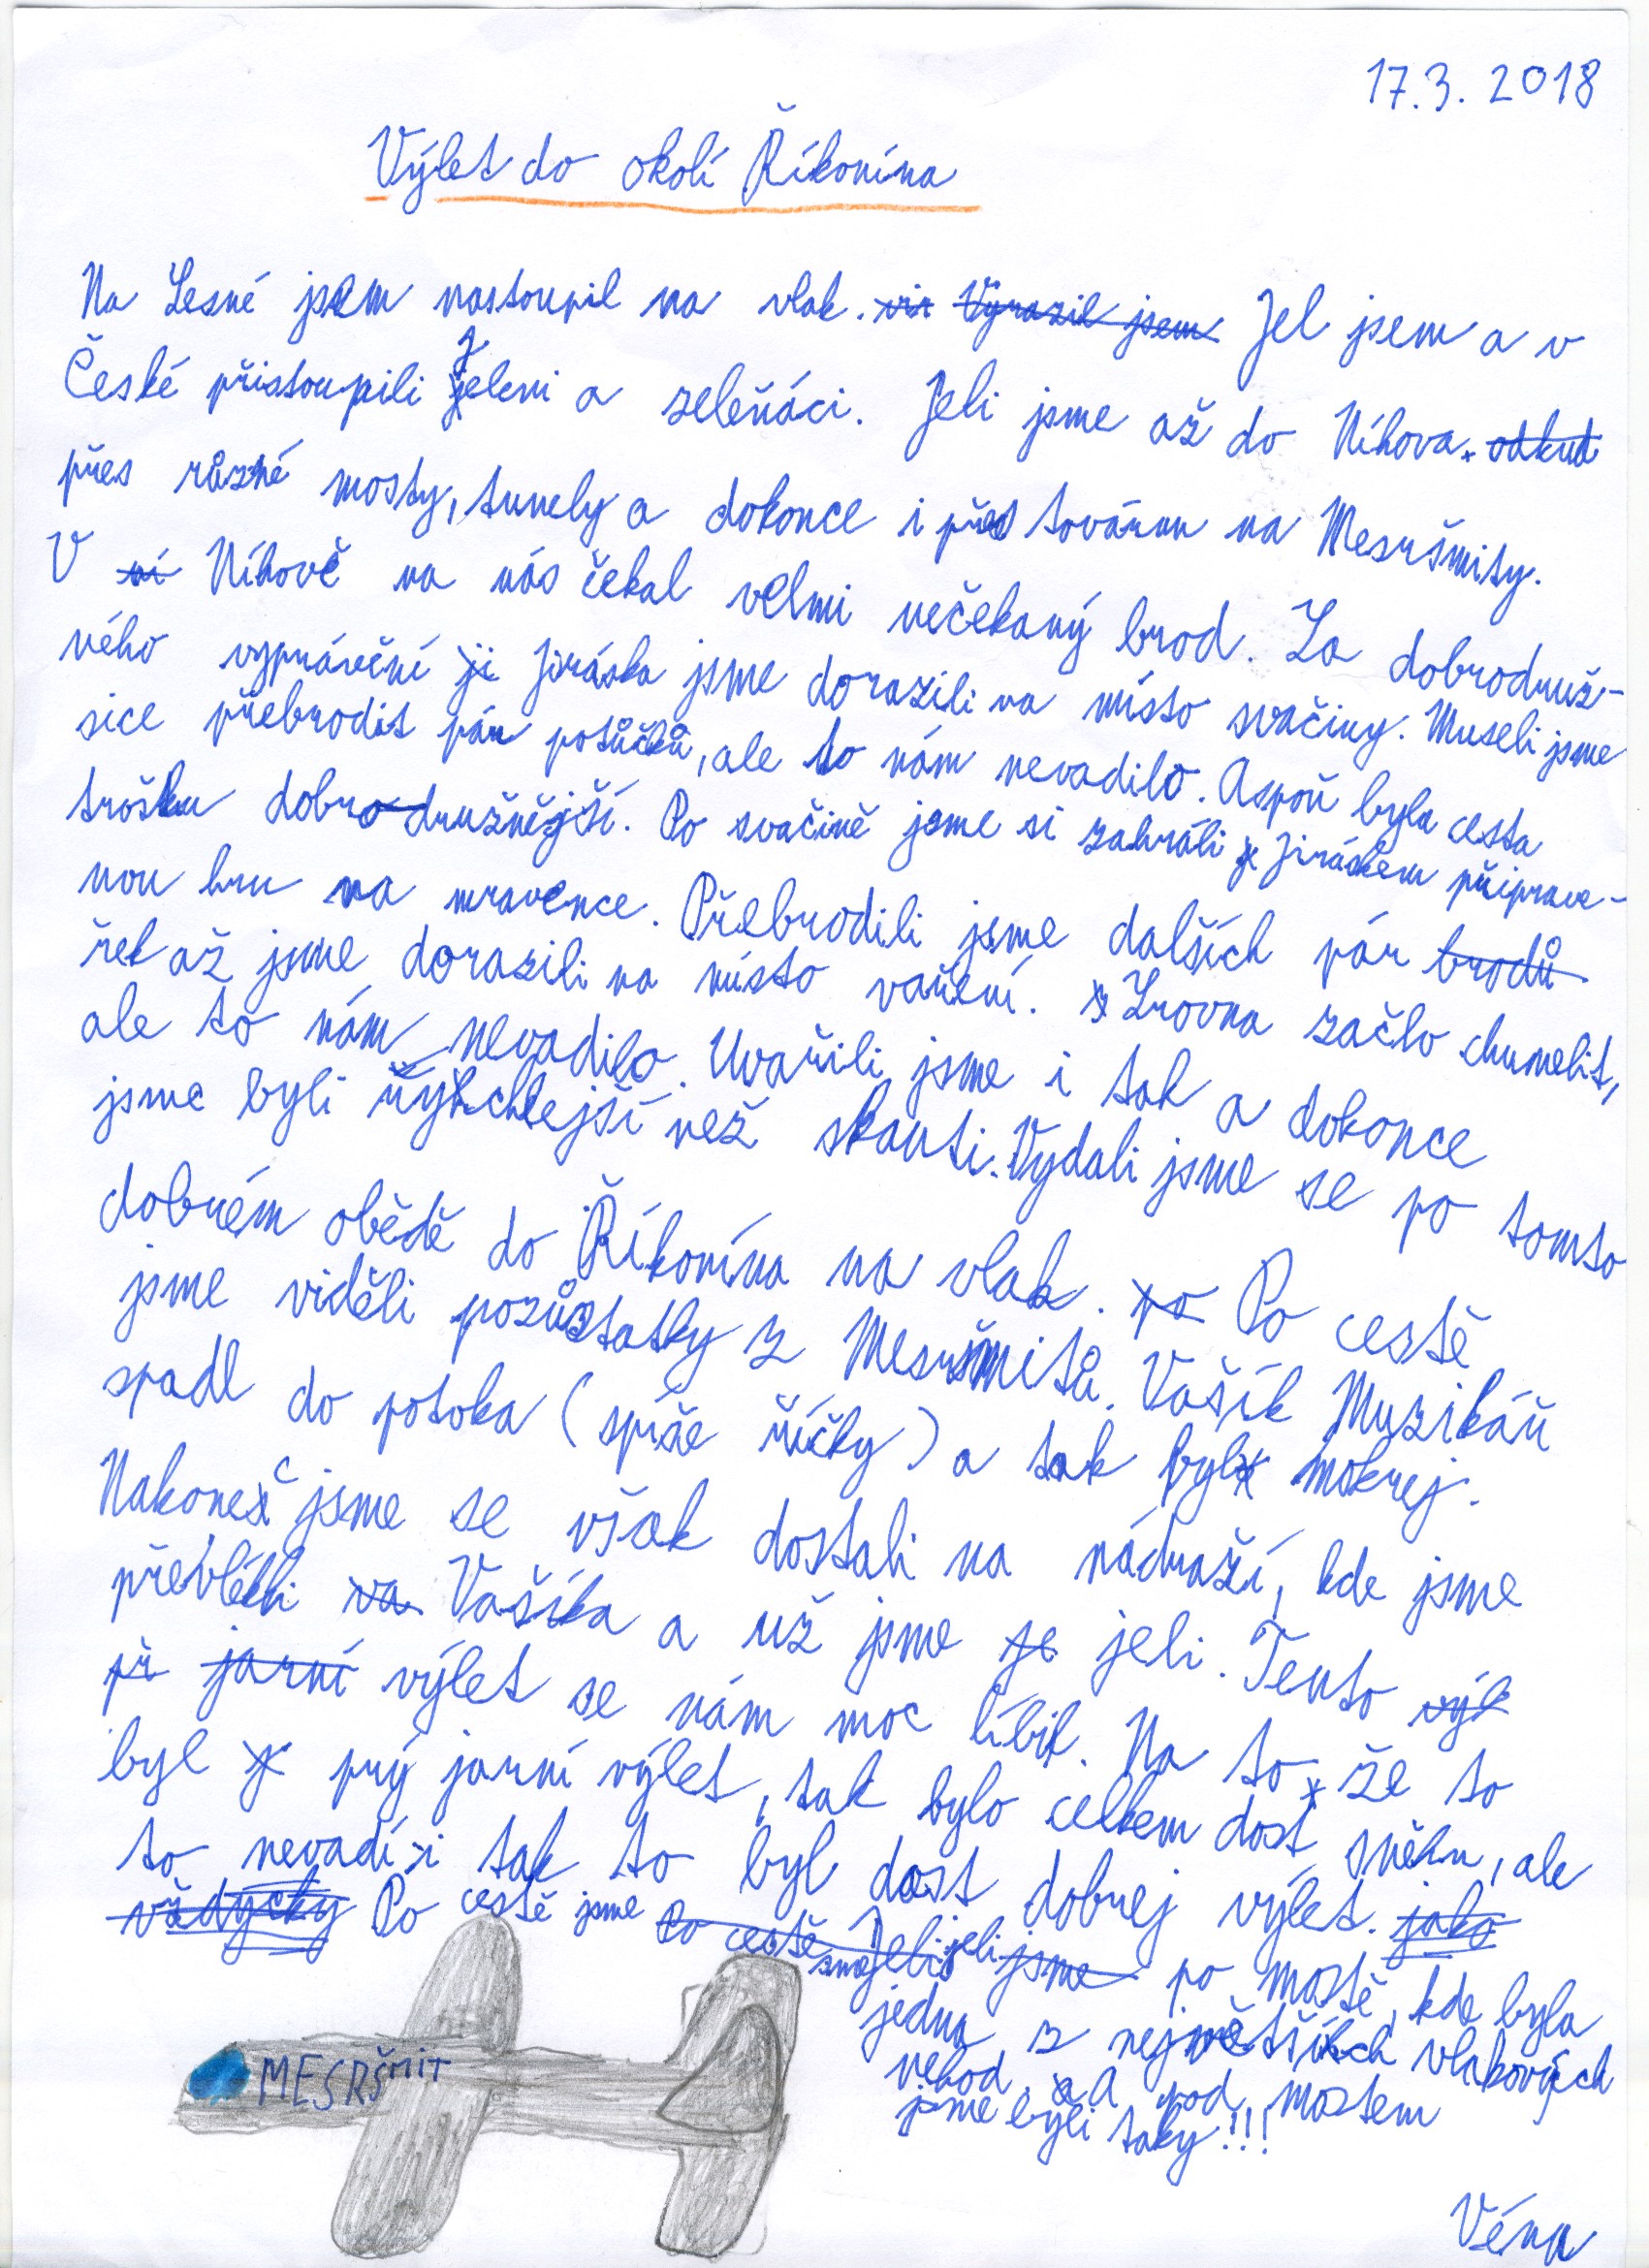 17.3. 2018
Výlet do okolí Říkonína
Na Lesné jsem nastoupil na vlak. vir Vyrazil jsem Jel jsem a v
České přistoupili Jeleni a zeleňáci. Jeli jsme až do Níhova. odkud
přes různé mosty, tunely a dokonce i přes továrnu na Mesršmity.
V ní Níhově na nás čekal velmi nečekaný brod. Za dobrodruž-
ného vyprávění ji Jiráska jsme dorazili na místo svačiny. Museli jsme
sice přebrodit pár potůčků, ale to nám nevadilo. Aspoň byla cesta
trošku dobrodružnější. Po svačině jsme si zahráli Jiráskem připrave-
nou hru na mravence. Přebrodili jsme dalších pár brodů
řek až jsme dorazili na místo vaření. z Zrovna začlo chumelit,
ale to nám nevadilo. Uvařili jsme i tak a dokonce
jsme byli rychlejší než skauti. Vydali jsme se po tomto
dobrém obědě do Říkonína na vlak. po Po cestě
jsme viděli pozůstatky z Mesršmitů. Vašík Muzikář
spadl do potoka (spíše říčky) a tak byl mokrej.
Nakonec jsme se však dostali na nádraží, kde jsme
převlékli va Vašíka a už jsme je jeli. Tento výl
př jarní výlet se nám moc líbil. Na to že to
byl prý jarní výlet, tak bylo celkem dost sněhu, ale
to nevadí i tak to byl dost dobrej výlet. jako
vždycky Po cestě jsme Po cestě jsme Jeli jeli jsme po mostě, kde byla
jedna z největších vlakových
nehod. a A pod mostem
jsme byli taky!!!
MESRŠMIT
Véna